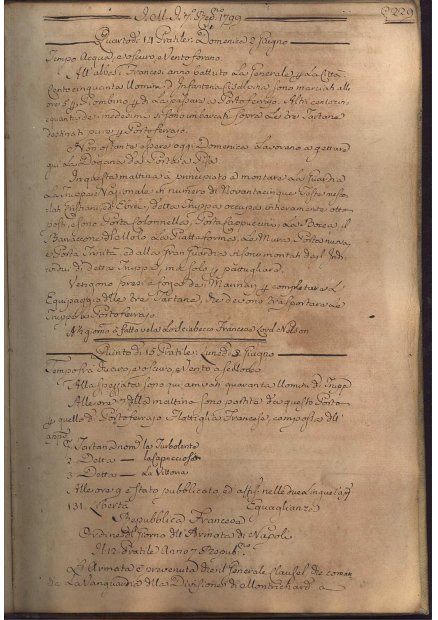 229
1799
Quarto dì 14 Pratile: Domenica 2 giugno
Tempo Acqua, e oscuro, e Vento forano.
All'alba i Francesi anno battuto La Generale La Città
Cento cinquanta Uomini d'Infanteria Cisalpina sono marciati alle
ore 5 Piombino di La passare a Portoferraio. Altri cento cin
quanta de medesimi si sono imbarcati sopra Le tre Tartane
destinati pure Portoferraio
Non ostante essere oggi Domenica Lavorano a gettar
giù La Dogana da Porta a Pisa.
In questa mattina a principiato a montare La Guardia
La Truppa Nazionale in numero di Novantacinque Teste
Ebrei, detta Truppa occupa interamente otto
posti, e sono Porta Colonnella, Porta Cappuccini, La Bocca, il
Baraccone La Piattaforma, La Mura, Porta nuova,
e Porta Trinità, ed alla gran Guardia vi sono montati degl' Indi
vidui di detta Truppa, mà solo pattugliare
Vengono presi a forza dei Marinari completare L'
Equipaggio delle tre Tartane, che devono trasportare Le
Truppe a Portoferraio
giorno a fatto vela lo Sciabecco Francese Lord Nelson
Quinto dì 15 Pratile: Lunedì 3 giugno
Tempo frà chiaro, e oscuro, e Vento a Scilocco
Alla spezzata sono qui arrivati quaranta Uomini di Truppa
Alle ore 7 della mattina sono partite da questo Porto
quello di Portoferraio Flottiglia Francese, composta di
Tartana nom. La Turbolente
2 Detta — La Capricciosa
3 Detta — La Vittoria
Alle ore 9 è stato pubblicato ed affisso nelle due Lingue
131. Libertà Eguaglianza
Repubblica Francese
Ordine del giorno dell'Armata di Napoli
12 Pratile Anno 7 Repub.
L'Armata è prevenuta che il Generale Clausel che coman
da La Vanguardia della Divisione di Montrichard a